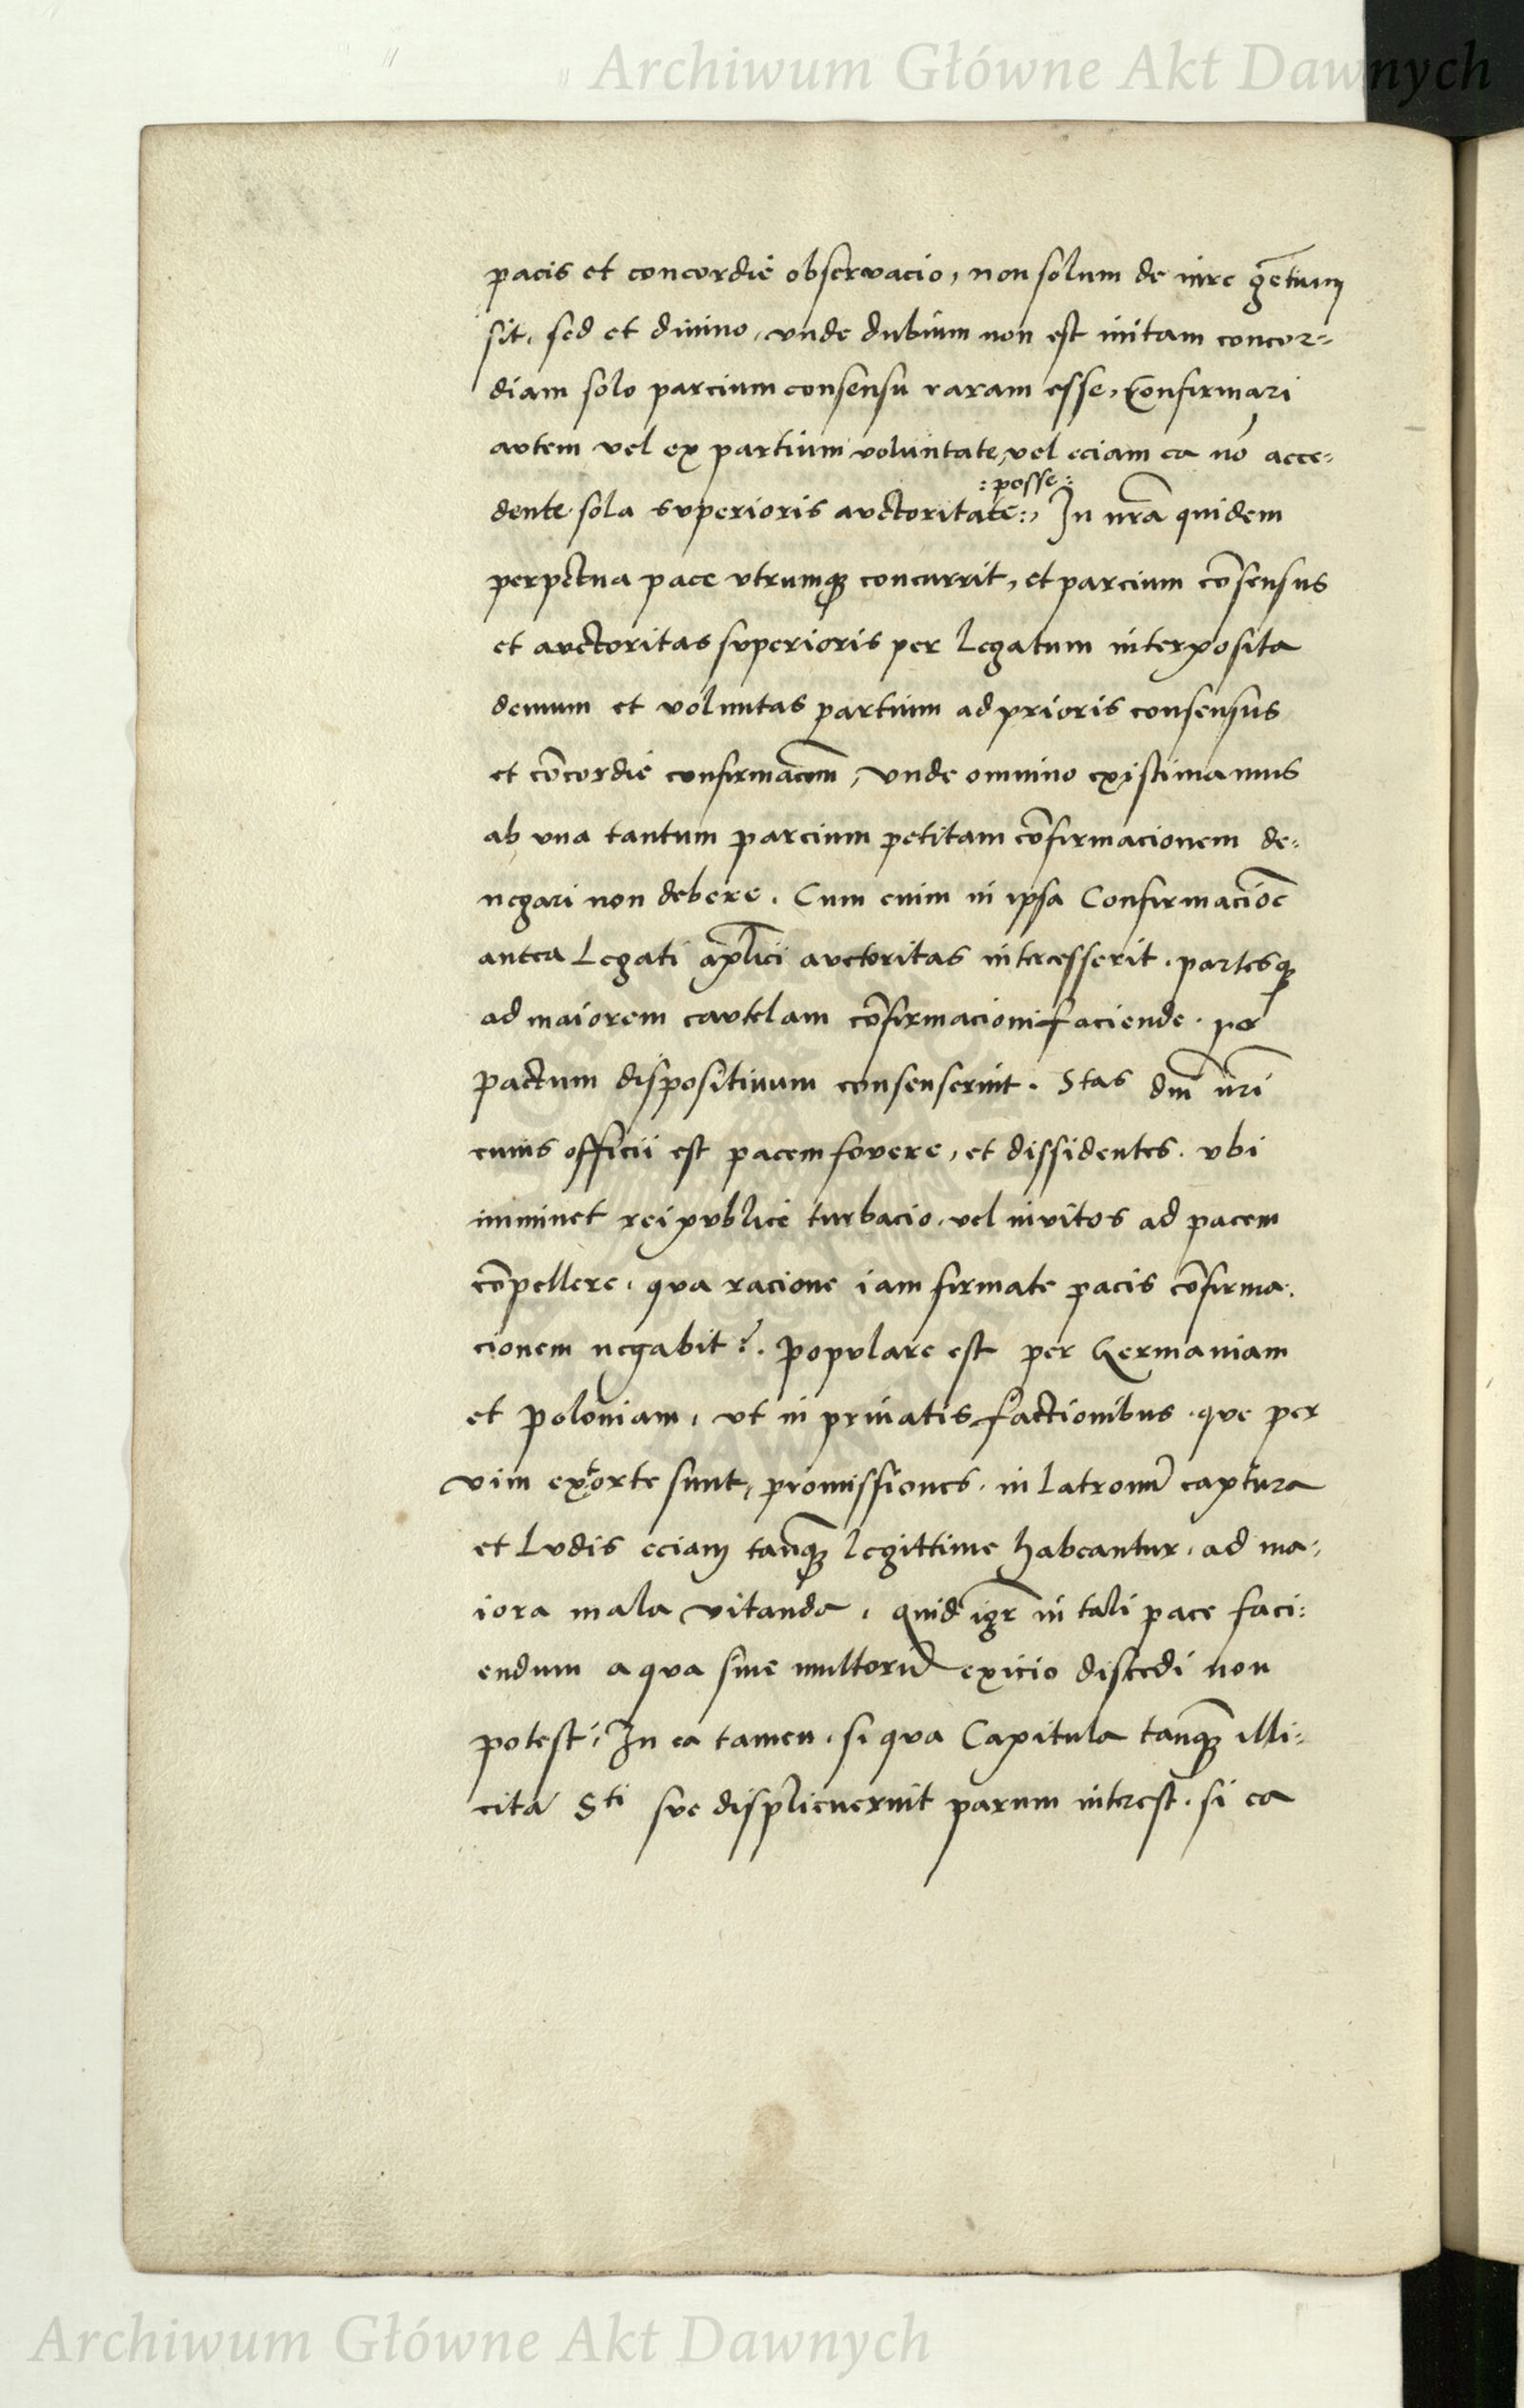 Archiwum Główne Akt Dawnych
pacis et concordie observacio, non solum de iure gētium
sit, sed et divino, unde dubium non est initam concor=
diam solo parcium consensu raram esse, Confirmari
autem vel ex partium voluntate, vel eciam ea nō acce=
:posse:
dente sola superioris auctoritate:, In nrā quidem
perpetua pace utrumq concurrit, et parcium cōsensus
et auctoritas superioris per legatum interposita
demum et voluntas partium ad prioris consensus
et cōcordie confirmacōem, unde omnino existimamus
ab una tantum parcium petitam cōfirmacionem de=
negari non debere. Cum enim in ipsa Confirmaciōe
antea Legati aplici auctoritas intercesserit. partesq
ad maiorem cautelam cōfirmacioni faciende. per
pactum dispositivum consenserint. Stas dm̄ nri
cuius officii est pacem fovere, et dissidentes. ubi
imminet rei publice turbacio. vel invitos ad pacem
cōpellere. qua racione iam firmate pacis cōfirma.
cionem negabit?. populare est per Germaniam
et poloniam, ut in privatis factionibus. que per
vim extorte sunt, promissiones. in latronū captura
et Ludis eciam tanq̄ legittime habeantur. ad ma=
iora mala vitanda. quid igr in tali pace faci=
endum a qua sine multorū exicio discedi non
potest; In ea tamen. si qua Capitula tanq̄ illi=
cita Sti sue displicuerint parum interest. si ea
Archiwum Główne Akt Dawnych